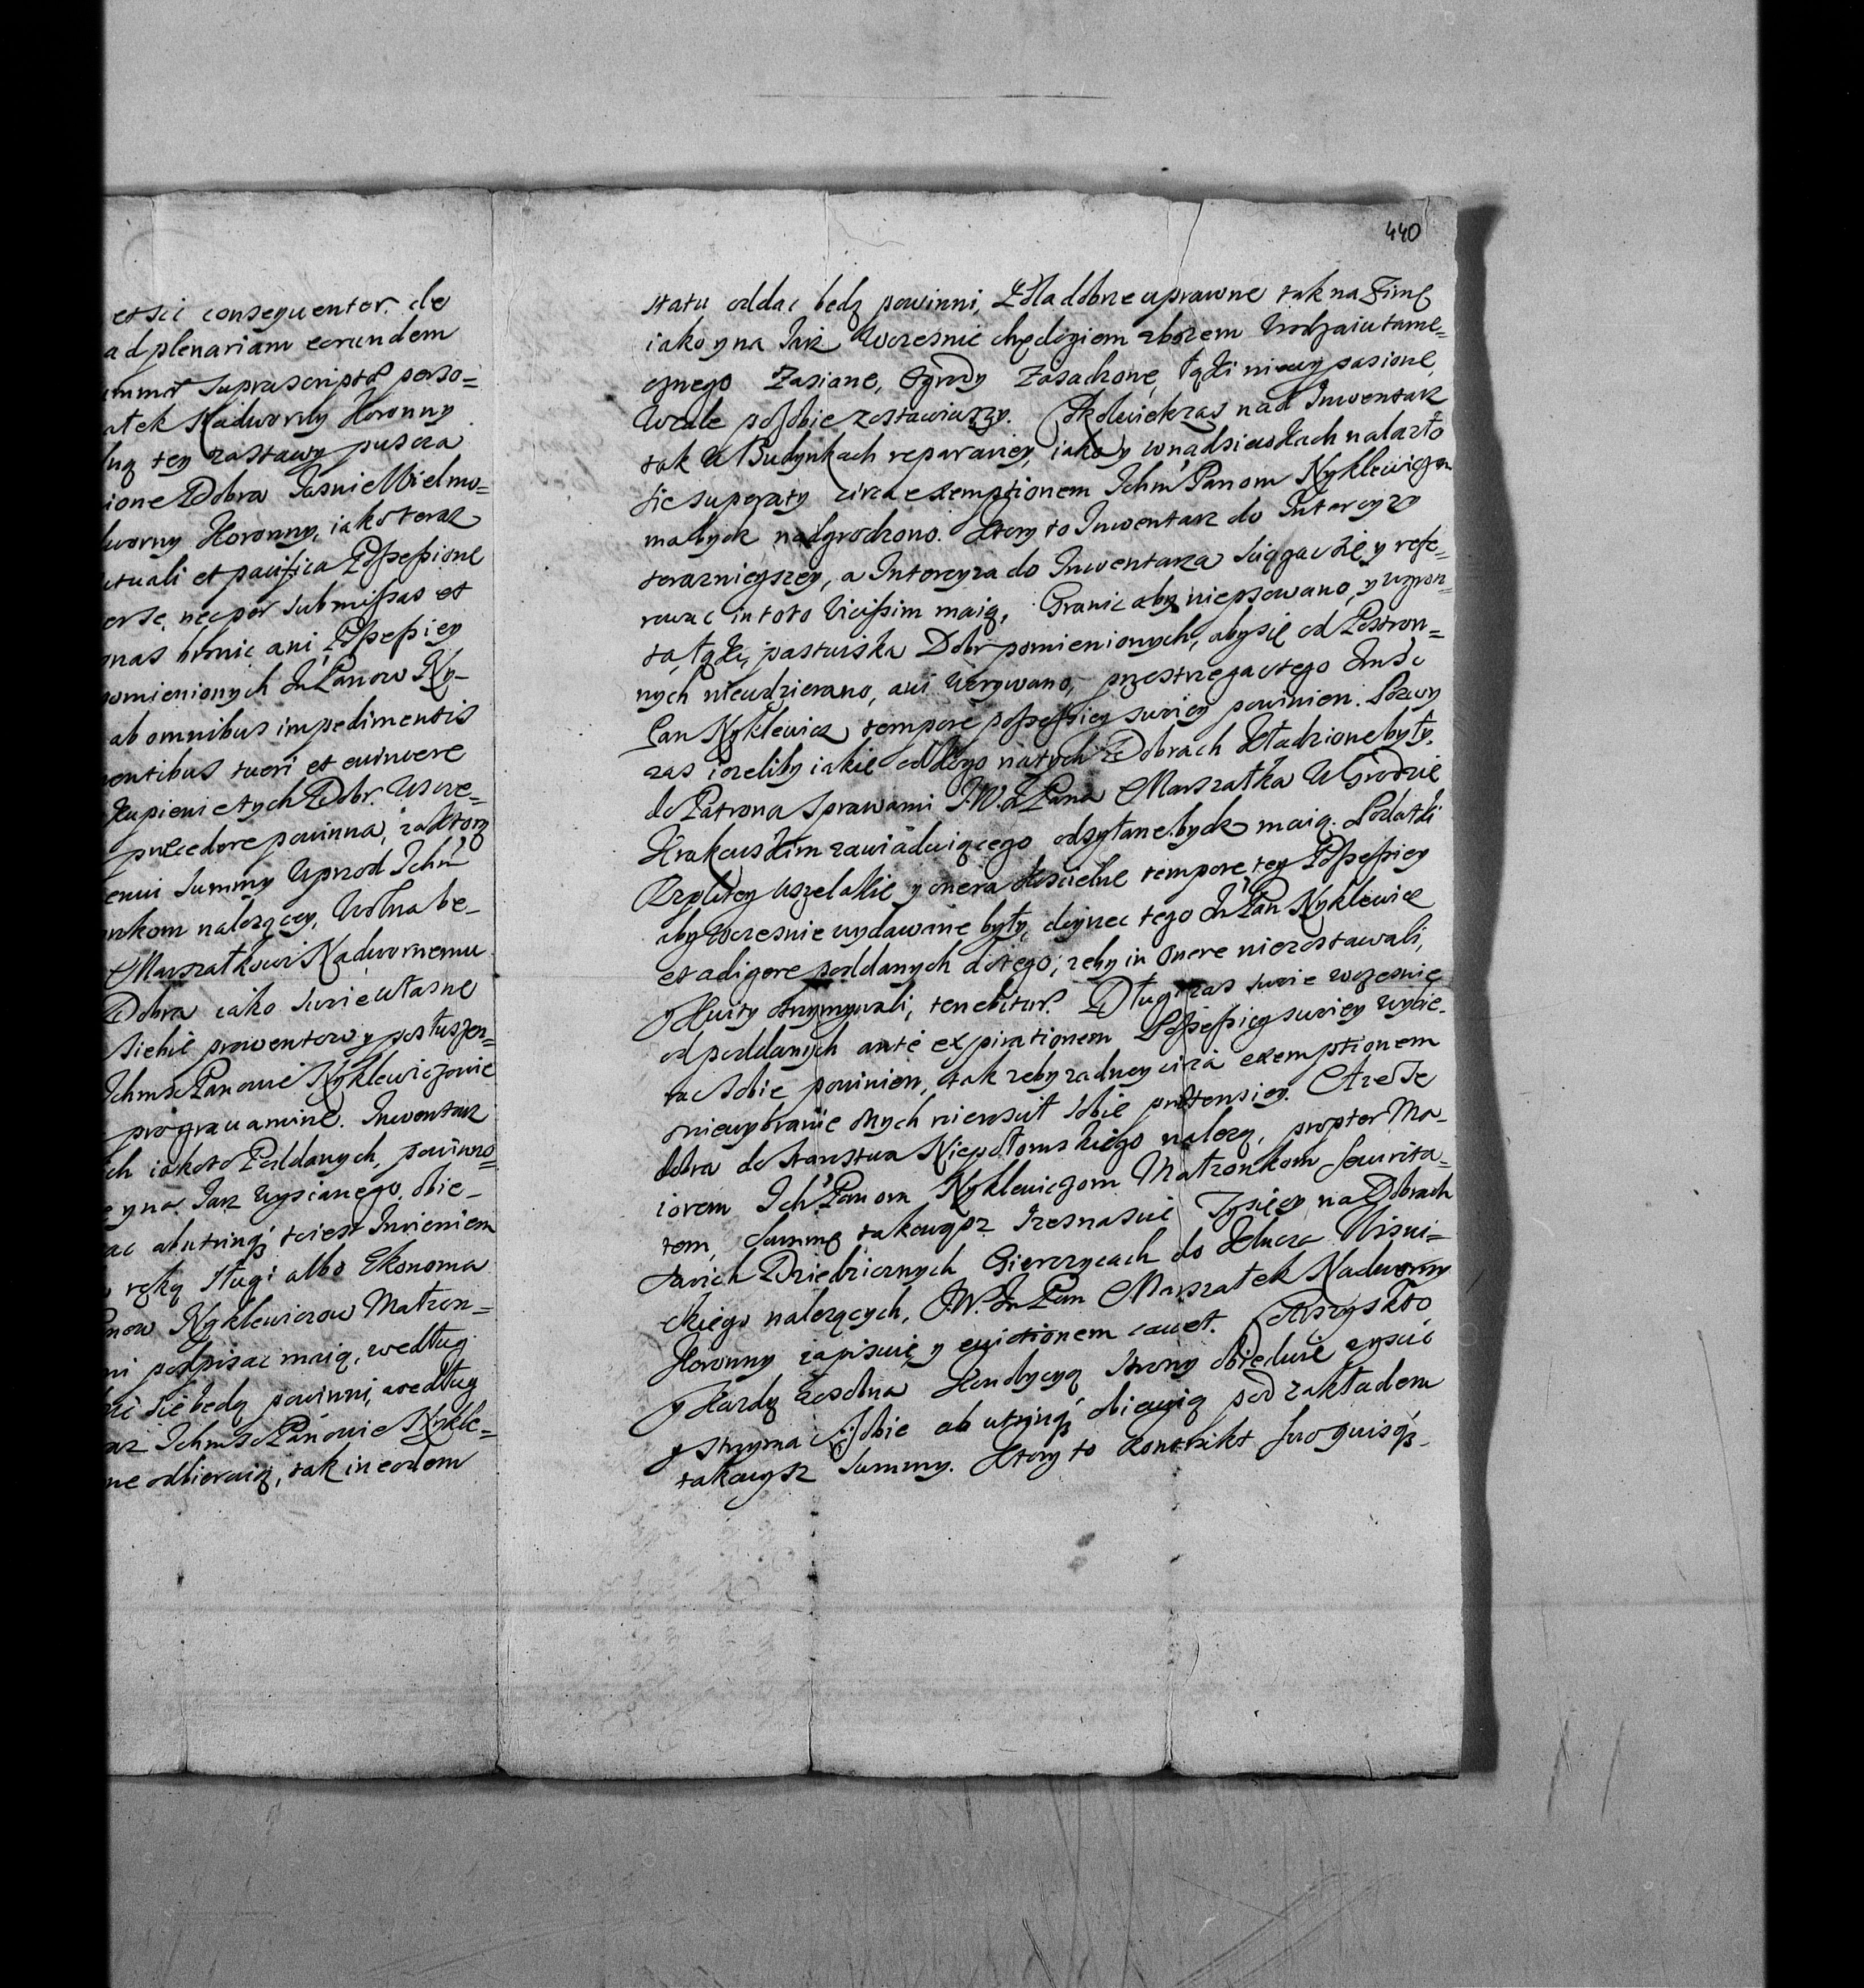 et sic consequenter. de
ad plenariam eorundem
summae suprascriptae perso=
atek Nadworny Koronny
luq tey zastawy puscza
ione Dobra Jasnie Wielmo=
dworny Koronny, iako teraz
actuali et pacifica Possessione
per se, nec per submissas et
onas bronic ani Possessiey
pomienionych Jch Panow Ny-
ab omnibus impedimentis
pentibus tueri et evincere
kupieni etych Dobr. Uscze=
praecedere powinna, za ktorą
eniu Summy Uprzod Ichm
onkom nalezącey, Wolna be_
Marszałkowi Nadwornemu
Dobra iako swoie własne
Siebie prowentow y posłuszen=
Ichmsc Panowie Nyklewiczowie
pro grauamine. Inwentarz
ch iakoto Poddanych, powinno=
y na Jarz wysianego. obie_
ac ab utrinq3 to iest Imieniem
ręką Sługi albo Ekonoma
anow Nyklewiczow Małzon=
mi podpisac maią, według
ac sie będą powinni, według
az Ichmsc Panowie Nykle=
ne odbieraią, tak in eodem
440
statu oddac będą powinni, Zdla dobrze uprawne tak na Zimę
iako y na Jarz Wczesnie chędogiem zbozem Urodzaiu tame=
cznego Zasiane, Ogrody Zasadzone, łąki niewypasione,
Wcale po sobie zostawiwszy. Cokolwiekzas nad Inwentarz
tak w Budynkach reparaciey, iako y wnadsiewkach nalazło
sie superaty circa exemptionem Ichm Panom Nyklewiczom
ma bydz nadgrodzono. Ktory to Inwentarz do Intercyzy
terazniejszey, a Intercyza do Inwentarza sciągac się y refe=
rowac in toto Vicissim maią, Granic aby niepsowano, y Ugron=
ta, łąki, pastwiska Dobr pomienionych, aby się od Postron=
nych nieudzierano, ani Uerywano, przestrzegac tego Jmsc
Pan Nyklewicz tempore possessiey swoiey powinien. Pozwy
zas iezeliby iakie od kogo na tych Dobrach kładzione były,
do Patrona Sprawami JW. Jch Pana Marszałka W Grodzie
Krakowskim zawiaduiącego odsyłane bydz maią. Podatki
Rzpltey wszelakie y onera koscielne tempore tey Possessiey
aby wczesnie wydawane były, doyrzec tego Jm Pan Nyklewicz
et adigere poddanych do tego, zeby in onere niezostawali,
y kwity otrzymywali, tenebitur. Długi zas swoie wczesnie
od poddanych ante expirationem Possessiey swoiey wybie_
rac sobie powinien, tak zeby zadney circa exemptionem
oniewybranie onych nieroscił sobie praetensiey. A ze te
dobra do starostwa Niepołomskiego nalezą, propter Ma_
iorem Ich Panom Nyklewiczom Małzonkom securita=
tem, Summę takowąsz Trzynascie Tysięcy na Dobrach
swoich Dziedzicznych Gierczycach do klucza Wisni=
ckiego nalezących, J.W. Jm Pan Marszałek Nadworny
Koronny zapisuie y evictionem cavet. Co wszystko
y kazdą zosobna Kondycyą Strony obiedwie ziscic
y strzymac sobie ab utrinq3 obiecuią pod zakładem
takowysz Summy. Ktory to kontrakt suo quisq3.